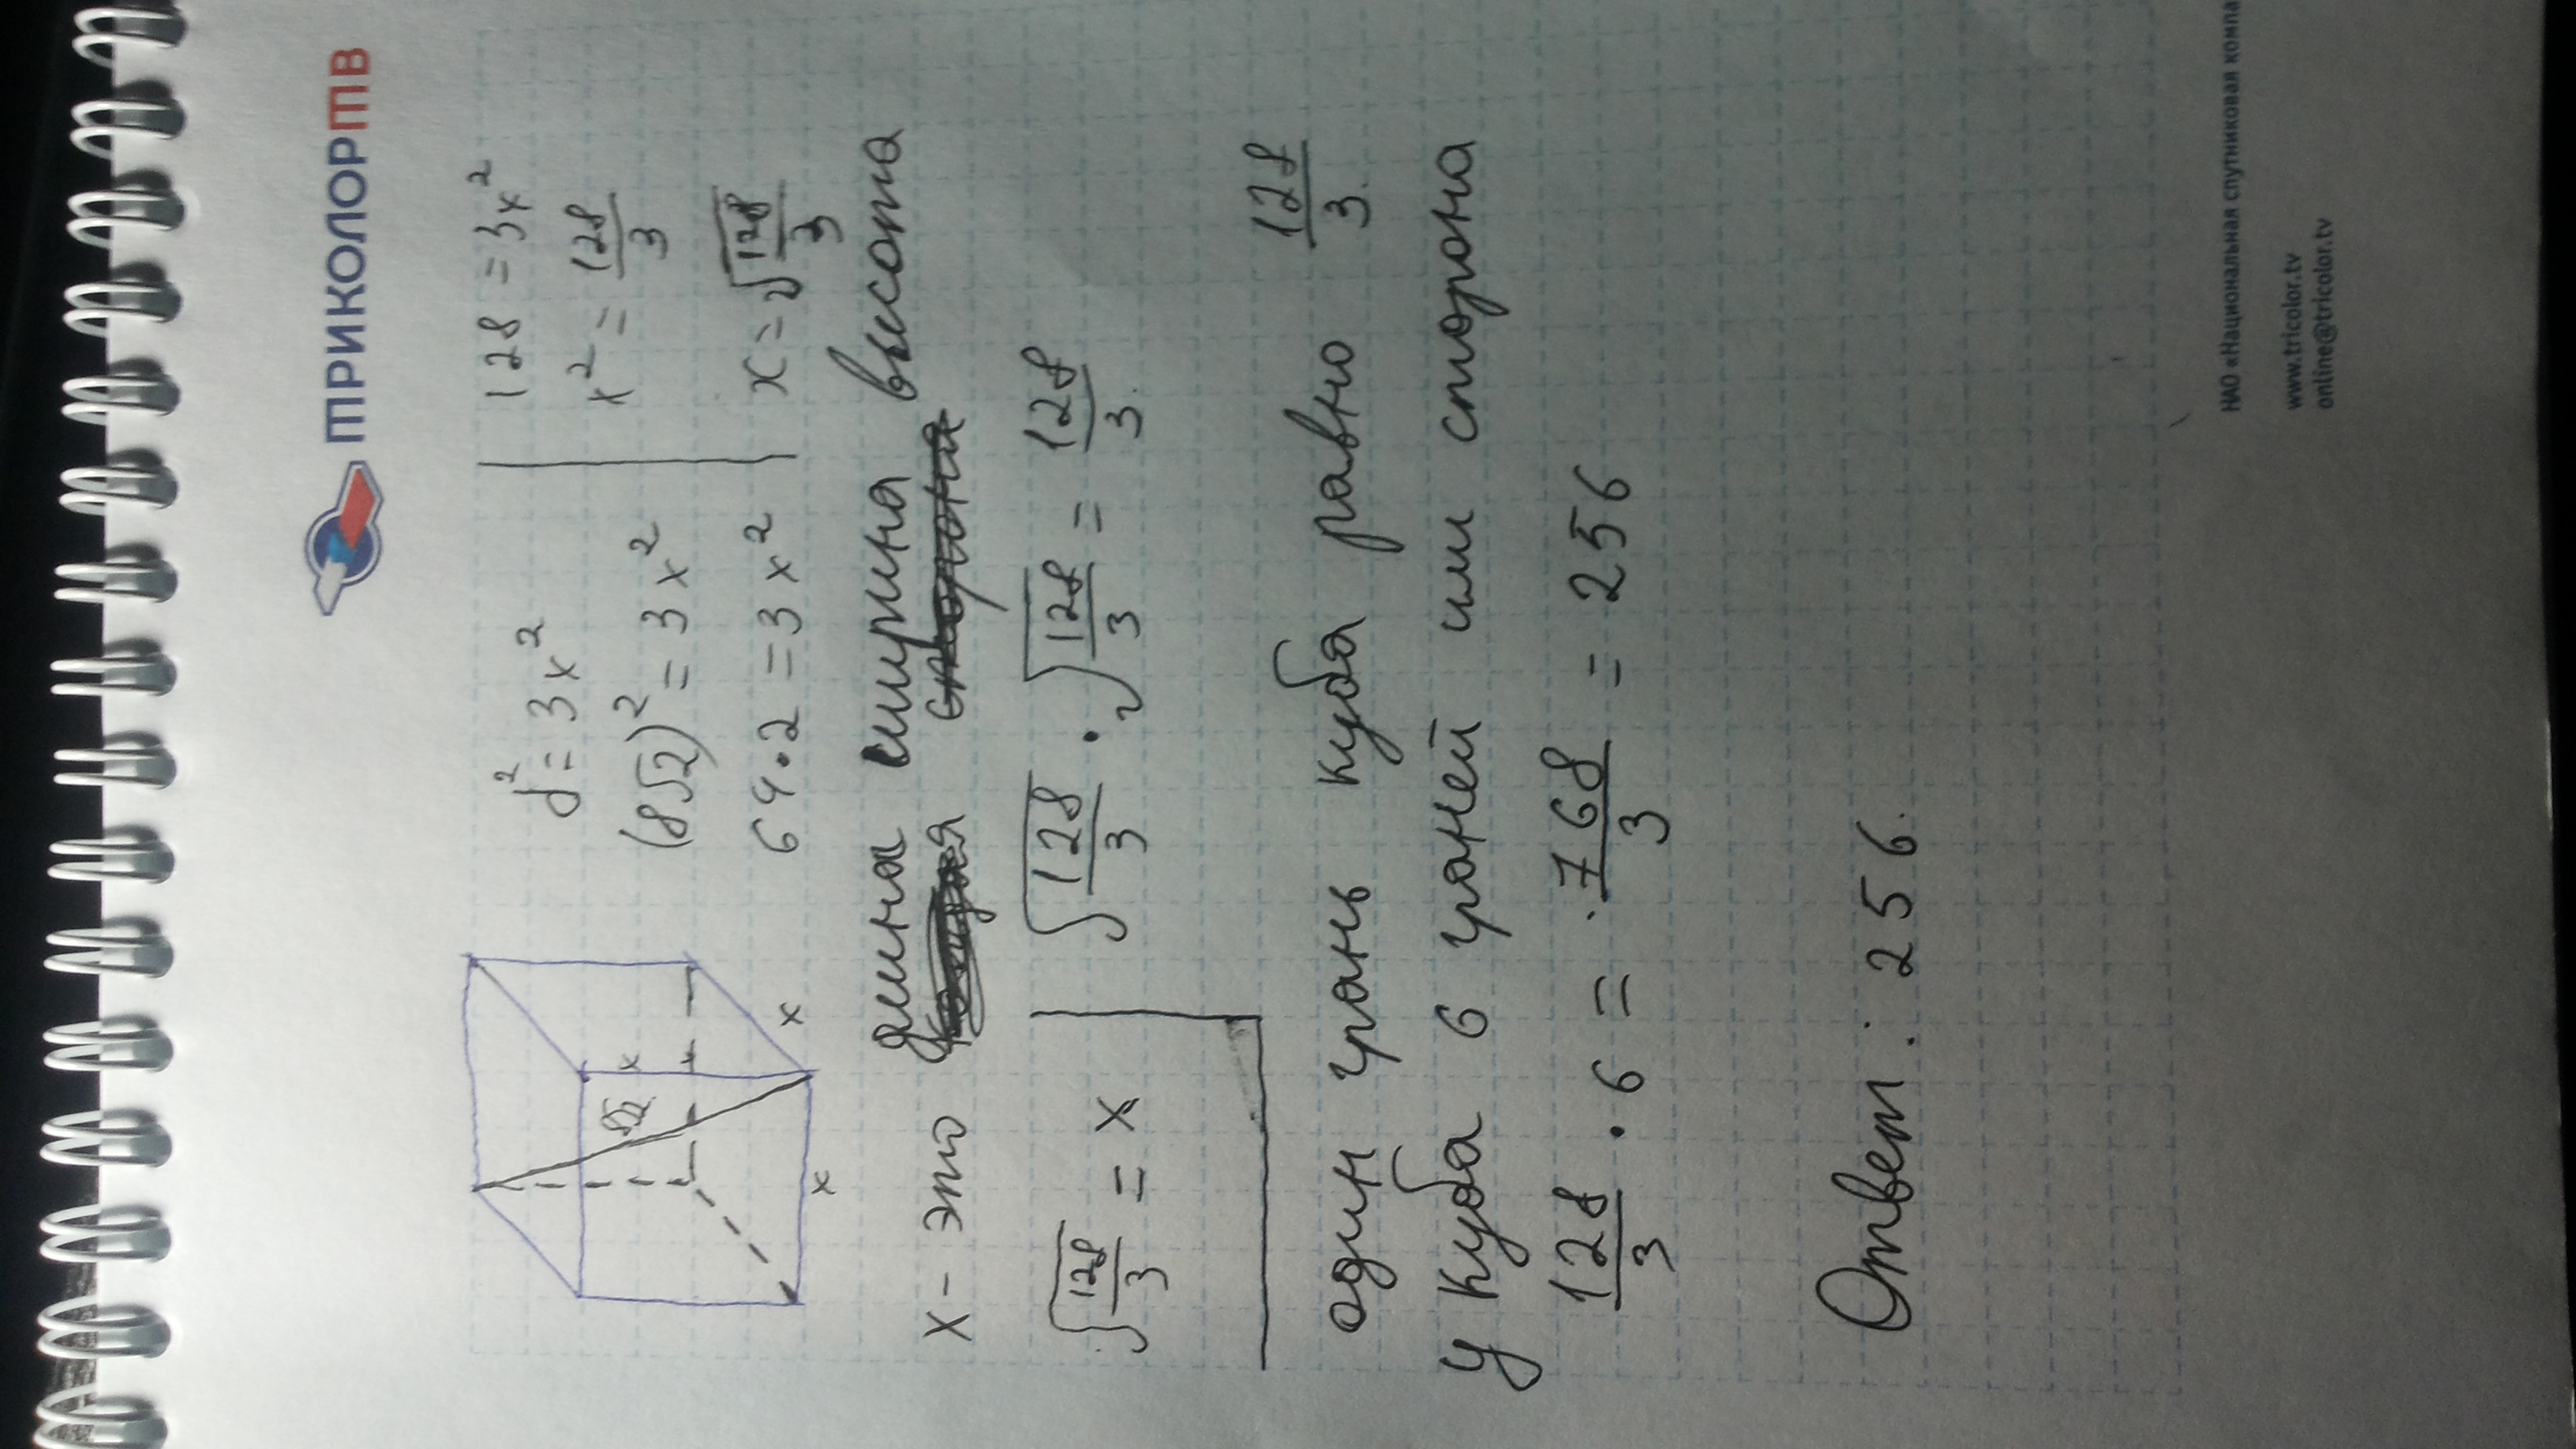 ТРИКОЛОРТВ
d² = 3x²
(8√2)² = 3x²
64·2 = 3x²
128 = 3x²
x² = 128/3
x = √128/3
8√2
x
x
x
x - это длина ширина высота
√128/3 = x
√128/3 · √128/3 = 128/3
один грань куба равно 128/3
у куба 6 граней или сторона
128/3 · 6 = 768/3 = 256
Ответ: 256.
НАО «Национальная спутниковая компа
www.tricolor.tv
online@tricolor.tv